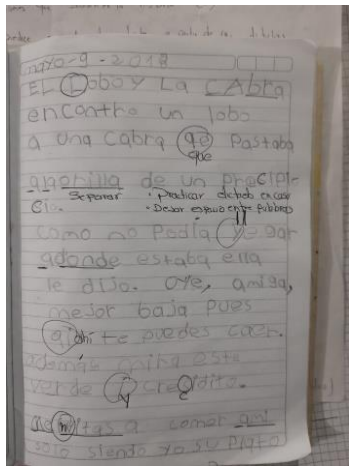 mayo-9-2018
EL Lobo y La CAbra
encontro un lobo
a una cabra qe pastaba
que
aNorilla de un preciPie
Cio. Separar · Practicar dictado en casa
· Dejar espacio entre palabras
como no Podia yegar
adonde estaba ella
le dijo. oye, amiga,
mejor baja pues
ahi te puedes caer.
además mira esta
verde y crecidito.
comer ami
solo siendo yo su Plato